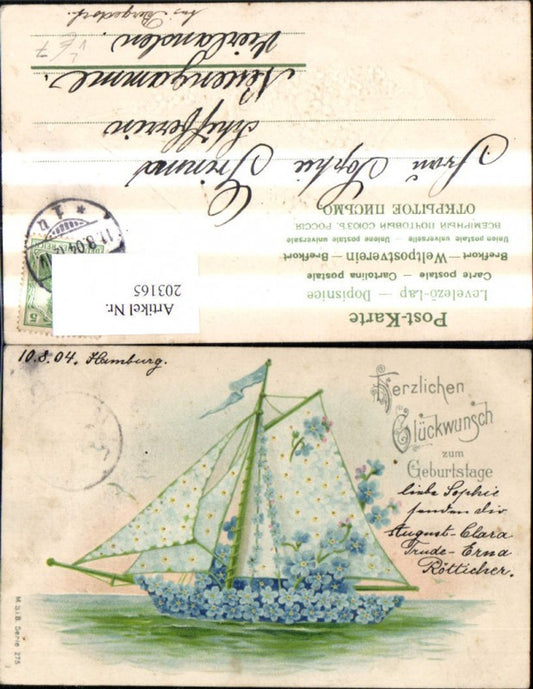 Post-Karte
Levelező-Lap — Dopisnice
Carte postale — Cartolina postale
Brefkort — Weltpostverein — Brefkort
Union postale universelle — Unione postale universale
ВСЕМІРНЫЙ ПОЧТОВЫЙ СОЮЗЪ. РОССІЯ
ОТКРЫТОЕ ПИСЬМО.
Frau Sophie
Neuengamme.
Vierlanden.
bei Bergedorf.
11.8.04
5
Artikel Nr.
203165
10.8.04. Hamburg.
Herzlichen
Glückwunsch
zum
Geburtstage
liebe Sophie
senden dir
August-Clara
Trude-Erna
Rötticher.
M.S.i.B. Serie 275